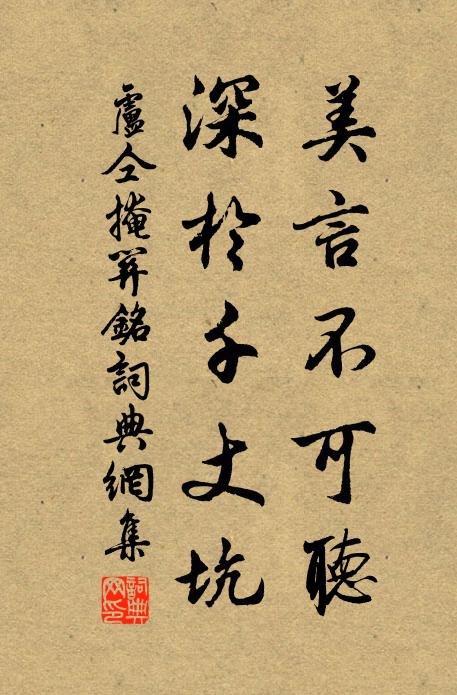 美言不可聽
深於千丈坑
盧仝掩關銘詞典網集
詞典
网印